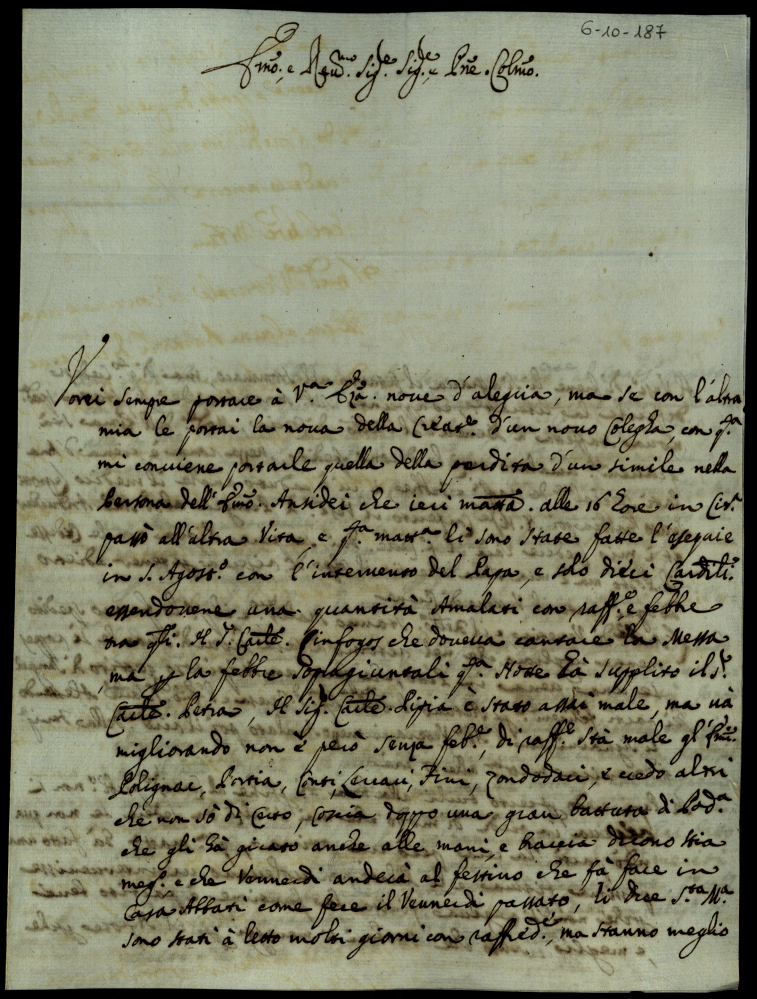 6-10-187
Emo. e Reud.mo Sig.e Sig.e, e Pne. Colmo.
Vorei sempre portare à V.a Eza. noue d'alegria, ma se con l'altra
mia le portai la noua della Creat.e d'un nouo Colegha, con q.a
mi conuiene portarle quella della perdita d'un simile nella
Persona dell'Emo. Ansidei che ieri matta. alle 16 hore in Cir.a
passò all'altra Vita, e q.a matt.a li sono state fatte l'esequie
in S. Agost.o con l'interuento del Papa, e solo dieci Cardili.
essendouene una quantità Amalati con raff.e, e febbre
tra q.ti. Il S. Carle. Cinfogos che doueua cantare la Messa
, ma p la febbre sopragiuntali q.a Notte hà supplito il S.
Carle. Petra, Il Sig. Carle. Pipia è stato assai male, ma uà
migliorando non è però senza feb.e, di raff.e stà male gl'Emi.
Polignac, Portia, Conti, Lercari, Fini, Zondodari, e credo altri
che non sò di certo, Coscia doppo una gran battuta di Pod.a
che gli hà girato anche alle mani, e braccia dicono stia
meg.o e che Vennerdi anderà al festino che fà fare in
Casa Abbati come fece il Vennerdi passato, li due S.ta M.a
sono stati à letto molti giorni con raffred.e, ma stanno meglio